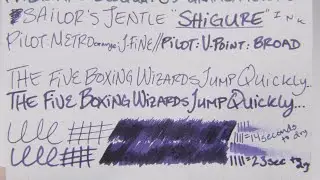 SAILOR'S JENTLE "SHIGURE" INK
PILOT: METRO J.FINE//PILOT: V.POINT: BROAD
THE FIVE BOXING WIZARDS JUMP QUICKLY...
THE FIVE BOXING WIZARDS JUMP QUICKLY...
=14 seconds to dry
=23 sec to dry